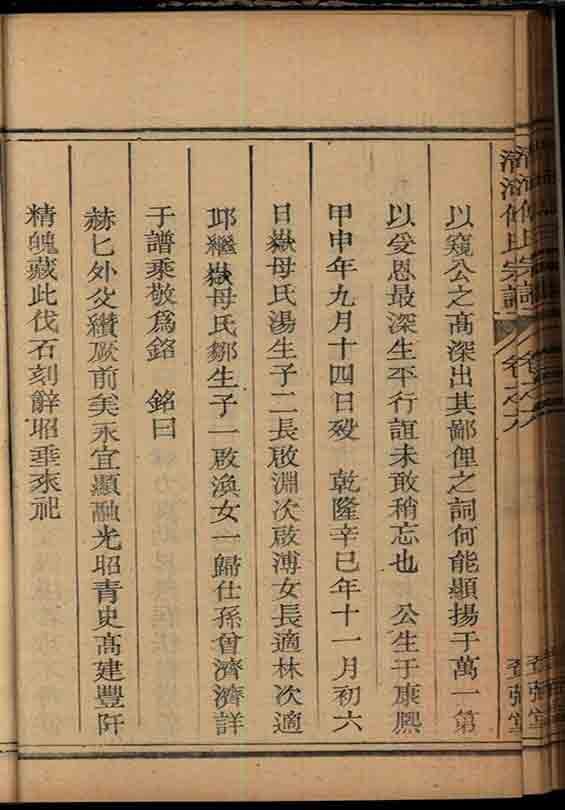 以窺公之高深出其鄙俚之詞何能顯揚于萬一第
以受恩最深生平行誼未敢稍忘也 公生于康熙
甲申年九月十四日歿 乾隆辛巳年十一月初六
日嶽母氏湯生子二長啟淵次啟溥女長適林次適
邱繼嶽母氏鄒生子一啟渙女一歸仕孫曾濟濟詳
于譜乘敬爲銘 銘曰
赫匕外父纘厥前矣永宜顯融光昭青史高建豐阡
精魄藏此伐石刻辭昭垂來祀
氏宗譜
卷之六
堂